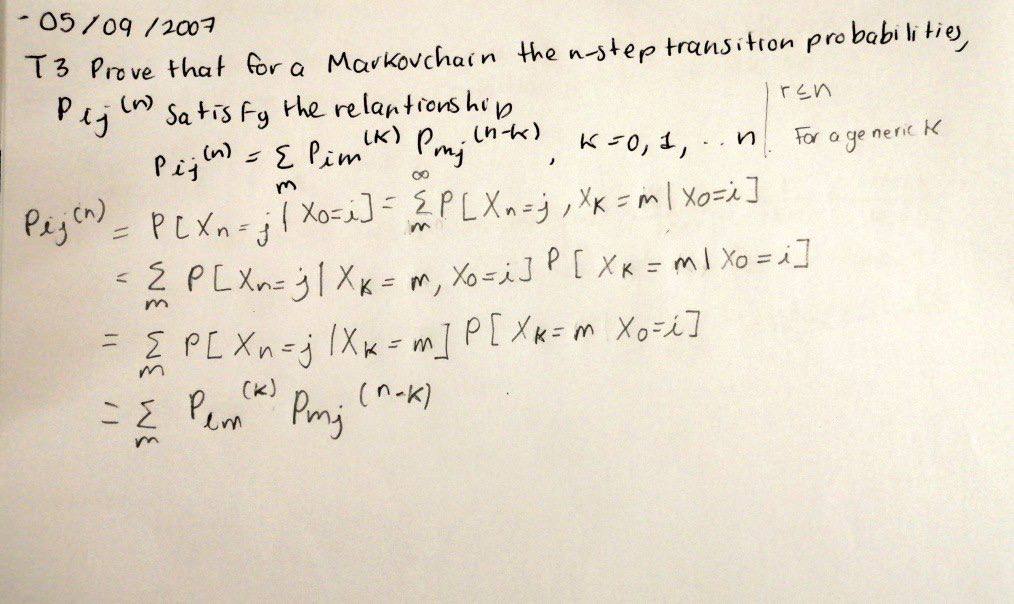 - 05/09/2007
T3 Prove that for a Markovchain the n-step transition probabilities,
Pij^(n) satisfy the relantionship | r≤n
Pij^(n) = Σ_m Pim^(k) Pmj^(n-k), K=0,1,..n | For a generic K
Pij^(n) = P[Xn=j | X0=i] = Σ_m^∞ P[Xn=j, XK=m | X0=i]
= Σ_m P[Xn=j | XK=m, X0=i] P[XK=m | X0=i]
= Σ_m P[Xn=j | XK=m] P[XK=m X0=i]
= Σ_m Pim^(k) Pmj^(n-k)